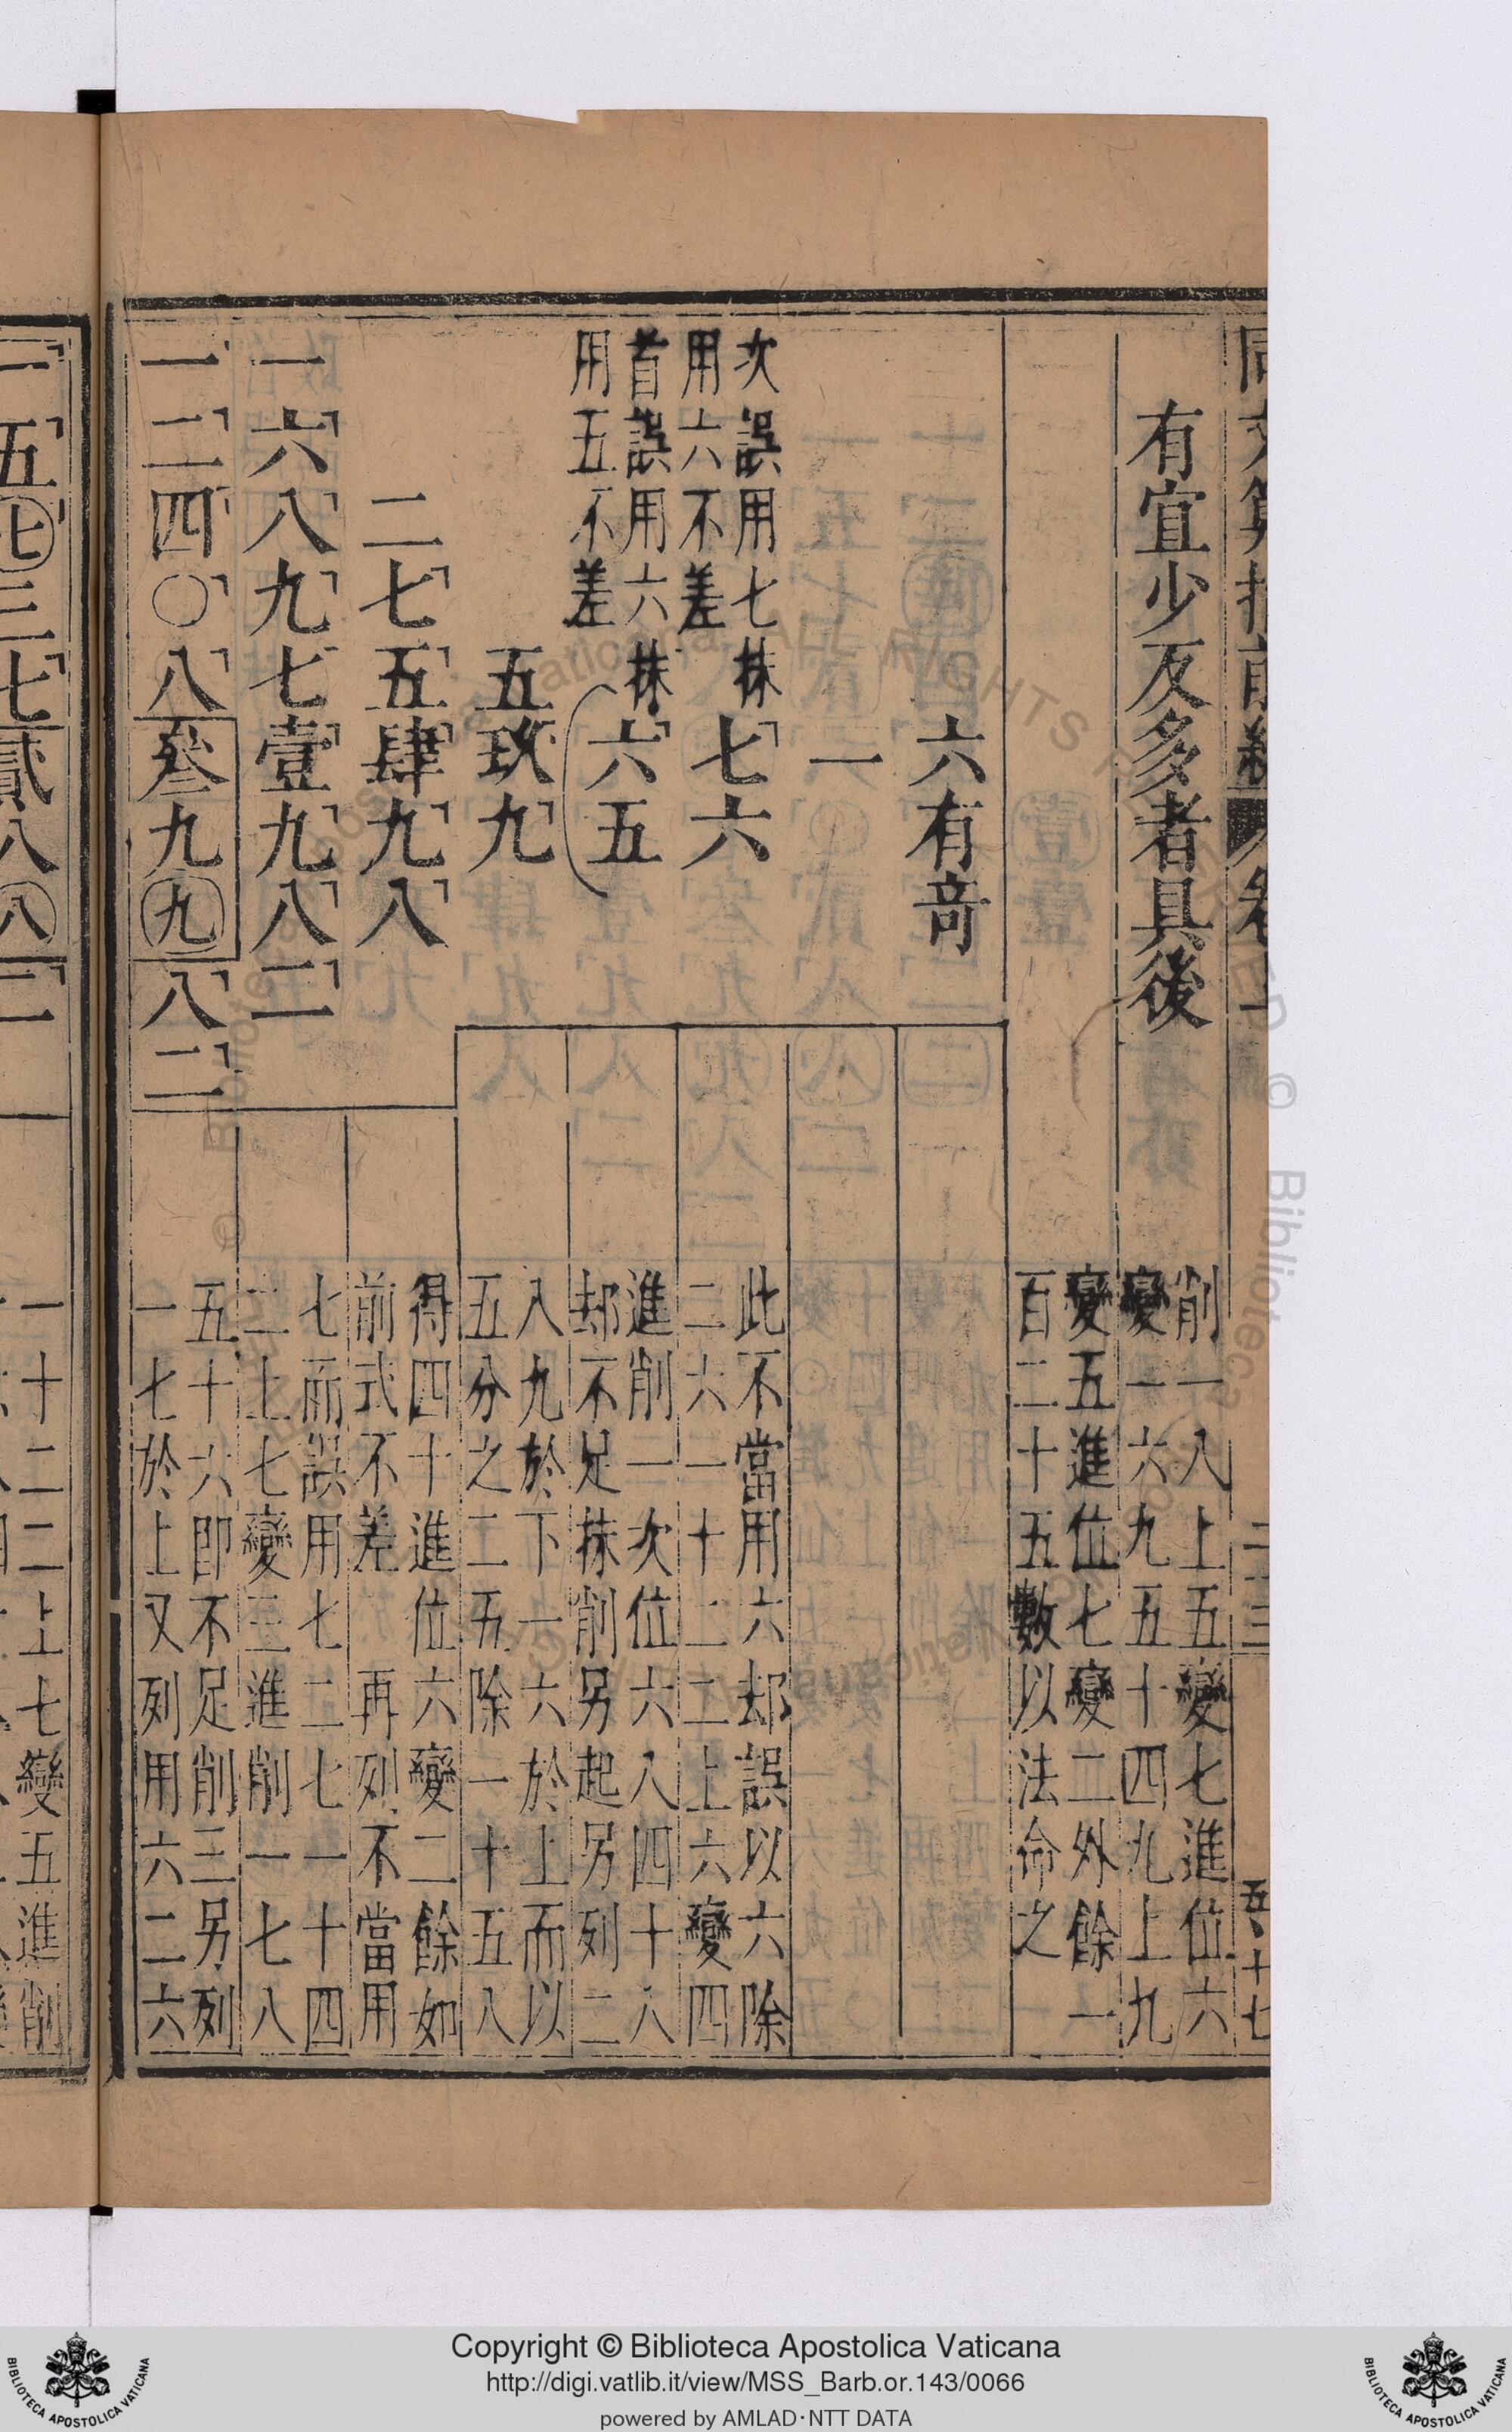 有宜少反多者具後
削一八上五變七進位六
變一六九五十四九上九
變五進位七變二外餘一
百二十五數以法命之
六有奇
一
次誤用七抹七六
用六不差
首誤用六抹六五
用五不差
五玖九
二七五肆九八
一六八九七壹九八二
一二四〇八叄九九八二
此不當用六却誤以六除
二六一十二二上六變四
進削一次位六八四十八
却不足抹削另起另列二
八九於下一六於上而以
五分之二五除一十五八
得四十進位六變二餘如
前式不差再列不當用
七而誤用七二七一十四
二上七變三進削一七八
五十六即不足削三另列
一七於上又列用六二六
一十二二上七變五進削
一五七三七貳八八二
二三
五十七
Copyright © Biblioteca Apostolica Vaticana
http://digi.vatlib.it/view/MSS_Barb.or.143/0066
powered by AMLAD·NTT DATA
BIBLIOTECA APOSTOLICA VATICANA
BIBLIOTECA APOSTOLICA VATICANA